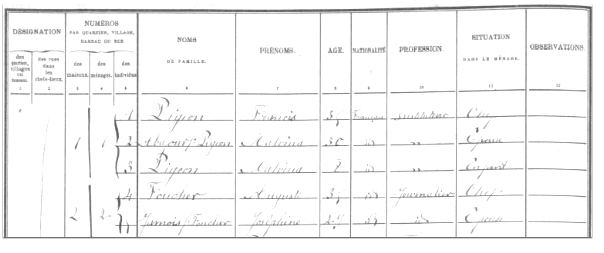 DÉSIGNATION
NUMÉROS
PAR QUARTIER, VILLAGE, HAMEAU OU RUE
NOMS
DE FAMILLE.
PRÉNOMS.
AGE.
NATIONALITÉ
PROFESSION.
SITUATION
DANS LE MÉNAGE.
OBSERVATIONS.
des quartiers, villages ou hameaux.
des rues dans les chefs-lieux.
des maisons.
des ménages.
des individus
1 2 3 4 5 6 7 8 9 10 11 12
1 Pigeon Francis Française instituteur Chef
1 1 2 Pigeon Malvina id " Épouse
3 Pigeon Malvina 8 id " Enfant
4 Foucher Auguste id Journalier Chef
2 2 Foucher Joséphine id id Épouse